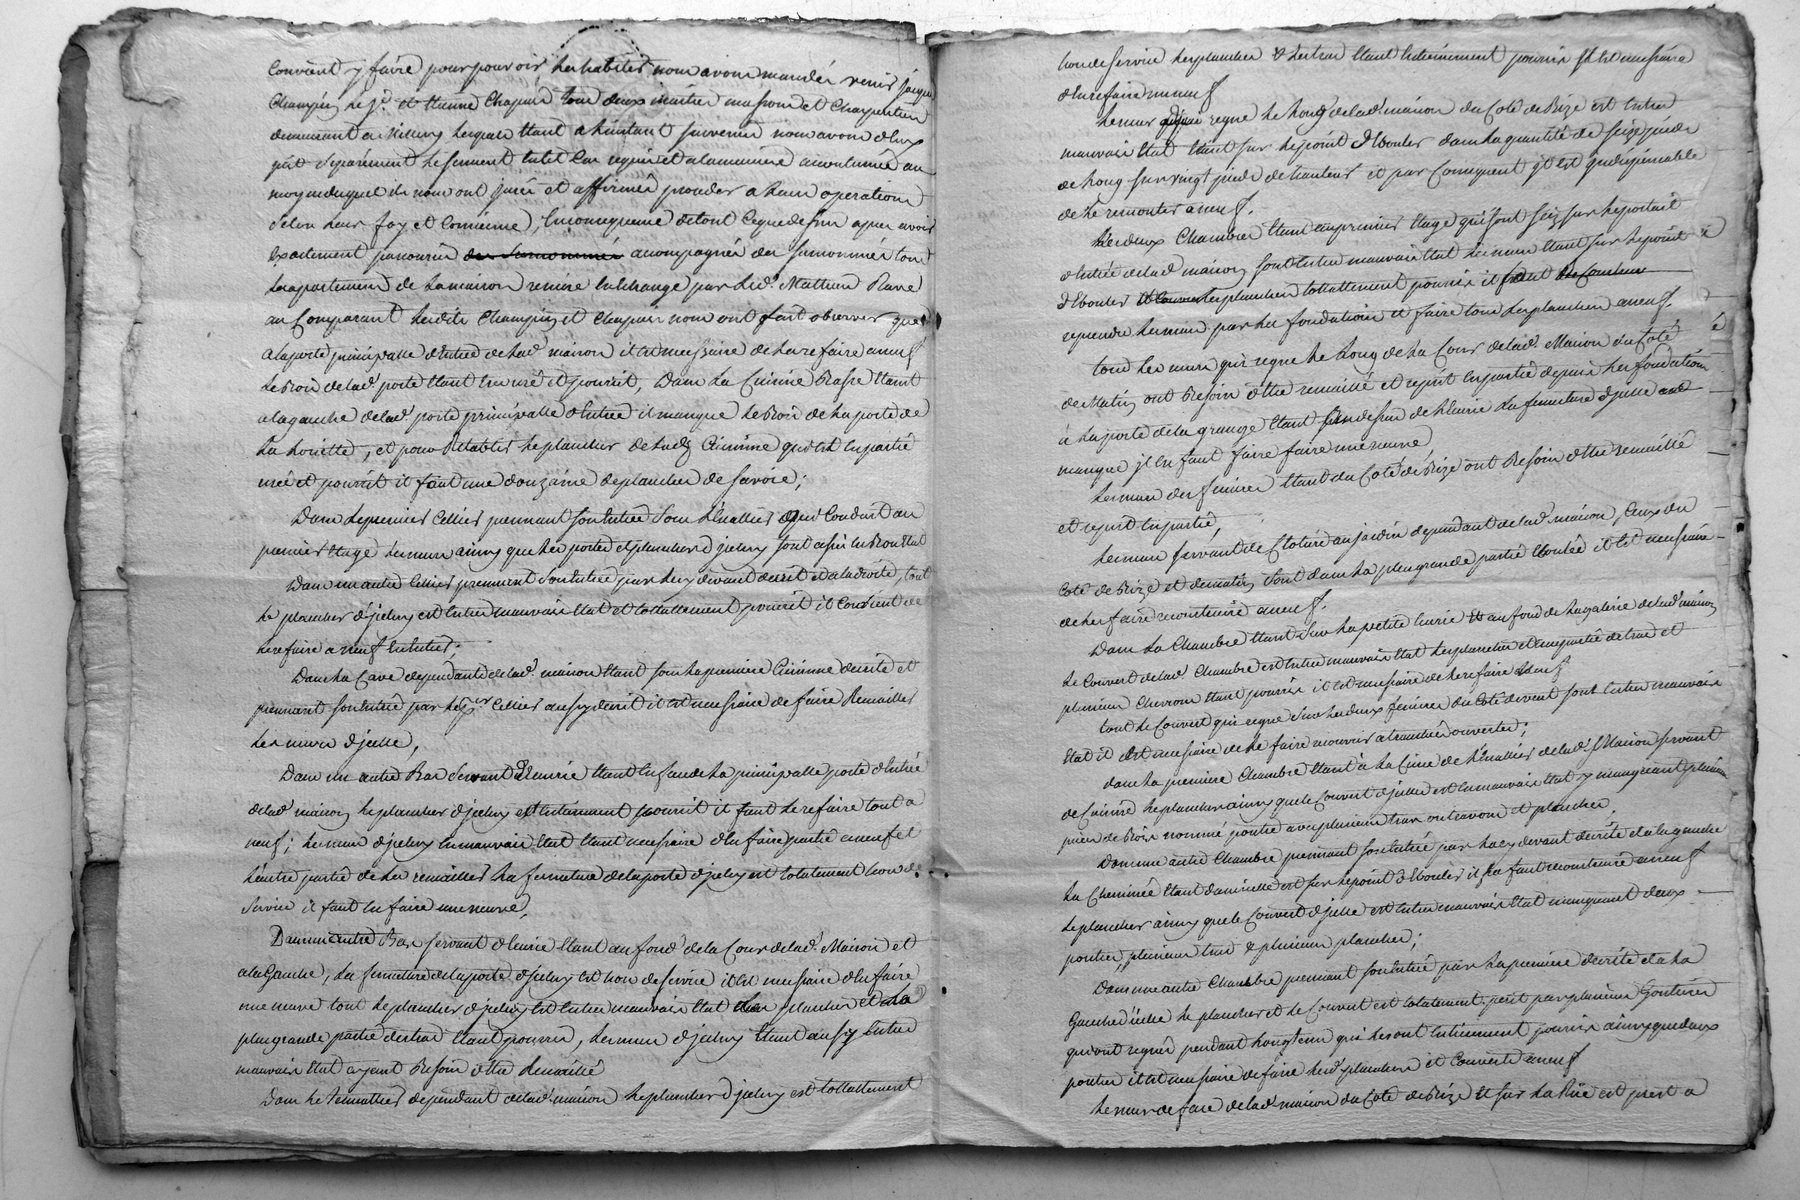 Convient y faire pour pouvoir les habiter, nous avons mandés venir jacque
Champin le jne et Etienne Chapuis tous deux maitre massons et Charpentier
demeurant a lesquels étant a l'instant survenus nous avons d'eux
prit séparément le serment en tel Cas requis et a la manière accoutumée au
moyen duquel ils nous ont jurés et affirmés proceder a leurs operations
Selon leur foy et Consience, En consequence de tout Ce que dessus apres avoir
Exactement parcourus des surnommés accompagnés des surnommés tous
les apartements de la maison remise En Echange par led. Mathieu
au Comparant lesdits Champin et Chapuis nous ont fait observer que
a la porte principalle d'Entrée de lad. maison il est nécessaire de la refaire a neuf
Le Bois de lad. porte étant tout usé et pourrit, Dans la Cuisine Basse étant
a la gauche de lad. porte principalle d'Entrée il manque le Bois de la porte de
la, et pour Rétablir le plancher de lad. Cuisinne qui est En partie
usé et pourrit il faut une douzaine de plancher de savoie;
Dans le premier Cellier prennant son Entrée Sous l'Escallier qui Conduit au
premier Etage les murs ainsy que les portes et planchers d'jceluy sont assés En Bon Etat
Dans un autre Cellier prennant Son Entrée par le cy devant décrit et a la droite, tout
le plancher d'jceluy est En tres mauvais Etat et tottallement pourrit il Convient de
le refaire a neuf En Entier;
Dans la Cave dependante de lad. maison étant sous la premiere Cuisinne décrite et
prennant son Entrée par le pr. Cellier aussy décrit il est nécessaire de faire Remailler
les murs d'jcelle,
Dans un autre Bas Servant d'Ecurie Etant En face de la principalle porte d'Entrée
de lad. maison le plancher d'jceluy est Entierement pourrit il faut le refaire tout a
neuf; les murs d'jceluy En mauvais Etat Etant nécessaire d'En faire partie a neuf et
l'autre partie de les remailler la fermeture de la porte d'jceluy est totalement hors de
Service il faut En faire une neuve,
Dans un autre Bas servant d'Ecurie Etant au fond de la Cour de lad. Maison et
a la Gauche, la fermeture de la porte d'jceluy est hors de service il est nécessaire d'En faire
une neuve tout le plancher d'jceluy est En tres mauvais Etat les planchers et la
plus grande partie des tras Etant pourris, les murs d'jceluy Etant aussy En tres
mauvais Etat ayant Besoin d'etre Remaillé
Dans le dependant de lad. maison le plancher d'jceluy est tottallement
hors de service les planches & les tras Etant Entierement pourris il est nécessaire
d'En refaire un neuf
le mur qui regne le long de lad. maison du Coté de Bize est En tres
mauvais Etat Etant sur le point d'Ebouler dans la quantité de seize pieds
de long sur vingt pieds de hauteur et par Consequent jl est indispensable
de le remonter a neuf.
les deux Chambre Etant au premier Etage qui sont sur le portail
d'Entrée de lad. maison sont En tres mauvais Etat les murs Etant sur le point
d'Ebouler les planchers tottallement pourris il faut
reprendre les murs par les fondations et faire tous les planchers a neuf.
tous les murs qui regne le long de la Cour de lad. Maison du Coté
de Matin ont Besoin d'etre remaillé et reprit En partie depuis les fondations
à la porte de la grange Etant au dessus de l'Ecurie la fermeture d'jcelle
manque jl En faut faire faire une neuve
les murs des Etant du Coté de Bize ont Besoin d'etre remaillé
et reprit En partie,
les murs servant de Cloture au jardin dependant de lad. maison, Ceux du
Coté de Bize et de matin Sont dans la plus grande partie Eboulés il est nécessaire
de les faire reconstruire a neuf.
Dans la Chambre Etant Sur la petite Ecurie et au fond de la galerie de lad. maison
le Couvert de lad. Chambre est En tres mauvais Etat les planches et une partie des tras et
plusieurs Chevrons Etant pourris il est nécessaire de le refaire a neuf
tout le Couvert qui regne Sur les deux du Coté de vent sont En tres mauvais
Etat il est nécessaire de le faire a tranchée ouverte;
dans la premiere Chambre Etant à la Cime de l'Escallier de lad. Maison servant
de Cuisine le plancher ainsy que le Couvert d'jcelle est En mauvais Etat y manquant plusieurs
pieces de Bois nommé poutre avec plusieurs tras ou travons et plancher.
Dans une autre Chambre prennant son Entrée par la cy devant décrite et a la gauche
la Cheminée Etant dans jcelle est sur le point d'Ebouler il la faut reconstruire a neuf
le plancher ainsy que le Couvert d'jcelle est En tres mauvais Etat manquant deux
poutres, plusieurs tras & plusieurs plancher;
Dans une autre Chambre prennant son Entrée par la premiere décrite et a la
Gauche d'jcelle le plancher et le Couvert est totalement par plusieurs Goutieres
qui ont regnés pendant longtems qui les ont Entierement pourris ainsy que deux
poutres il est nécessaire de faire led. plancher et Couvert a neuf
le mur de face de lad. maison du Coté de Bize et sur la Rüe est prest a